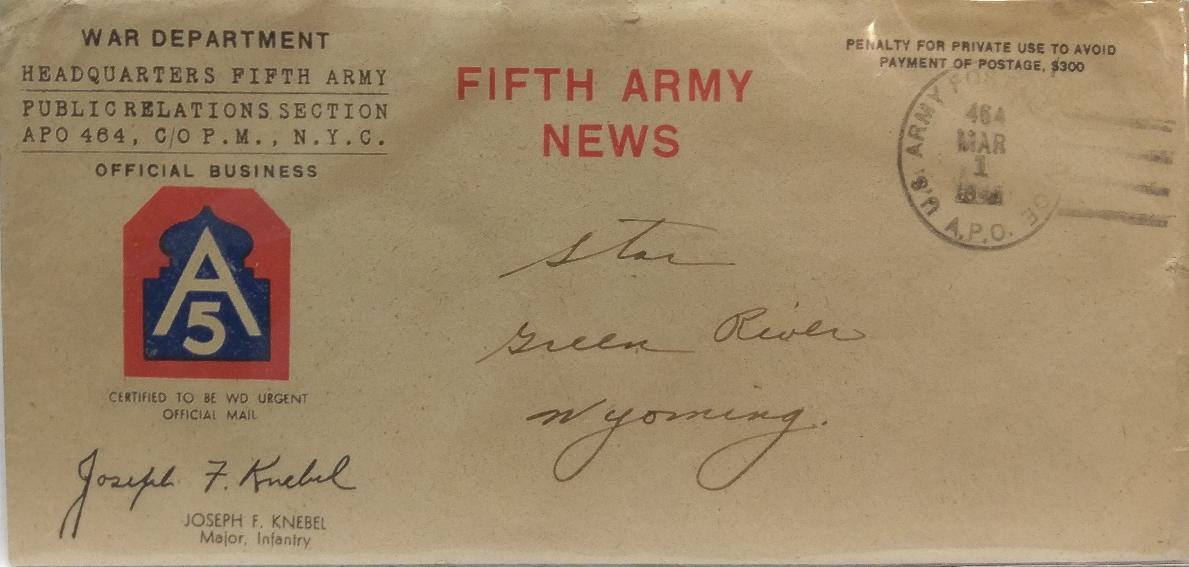 WAR DEPARTMENT
HEADQUARTERS FIFTH ARMY
PUBLIC RELATIONS SECTION
APO 464, C/O P.M., N.Y.C.
OFFICIAL BUSINESS
A
5
CERTIFIED TO BE WD URGENT
OFFICIAL MAIL
Joseph F. Knebel
JOSEPH F. KNEBEL
Major, Infantry
FIFTH ARMY
NEWS
PENALTY FOR PRIVATE USE TO AVOID
PAYMENT OF POSTAGE, $300
U.S. ARMY
A.P.O.
464
MAR
1
Star
Green River
Wyoming.